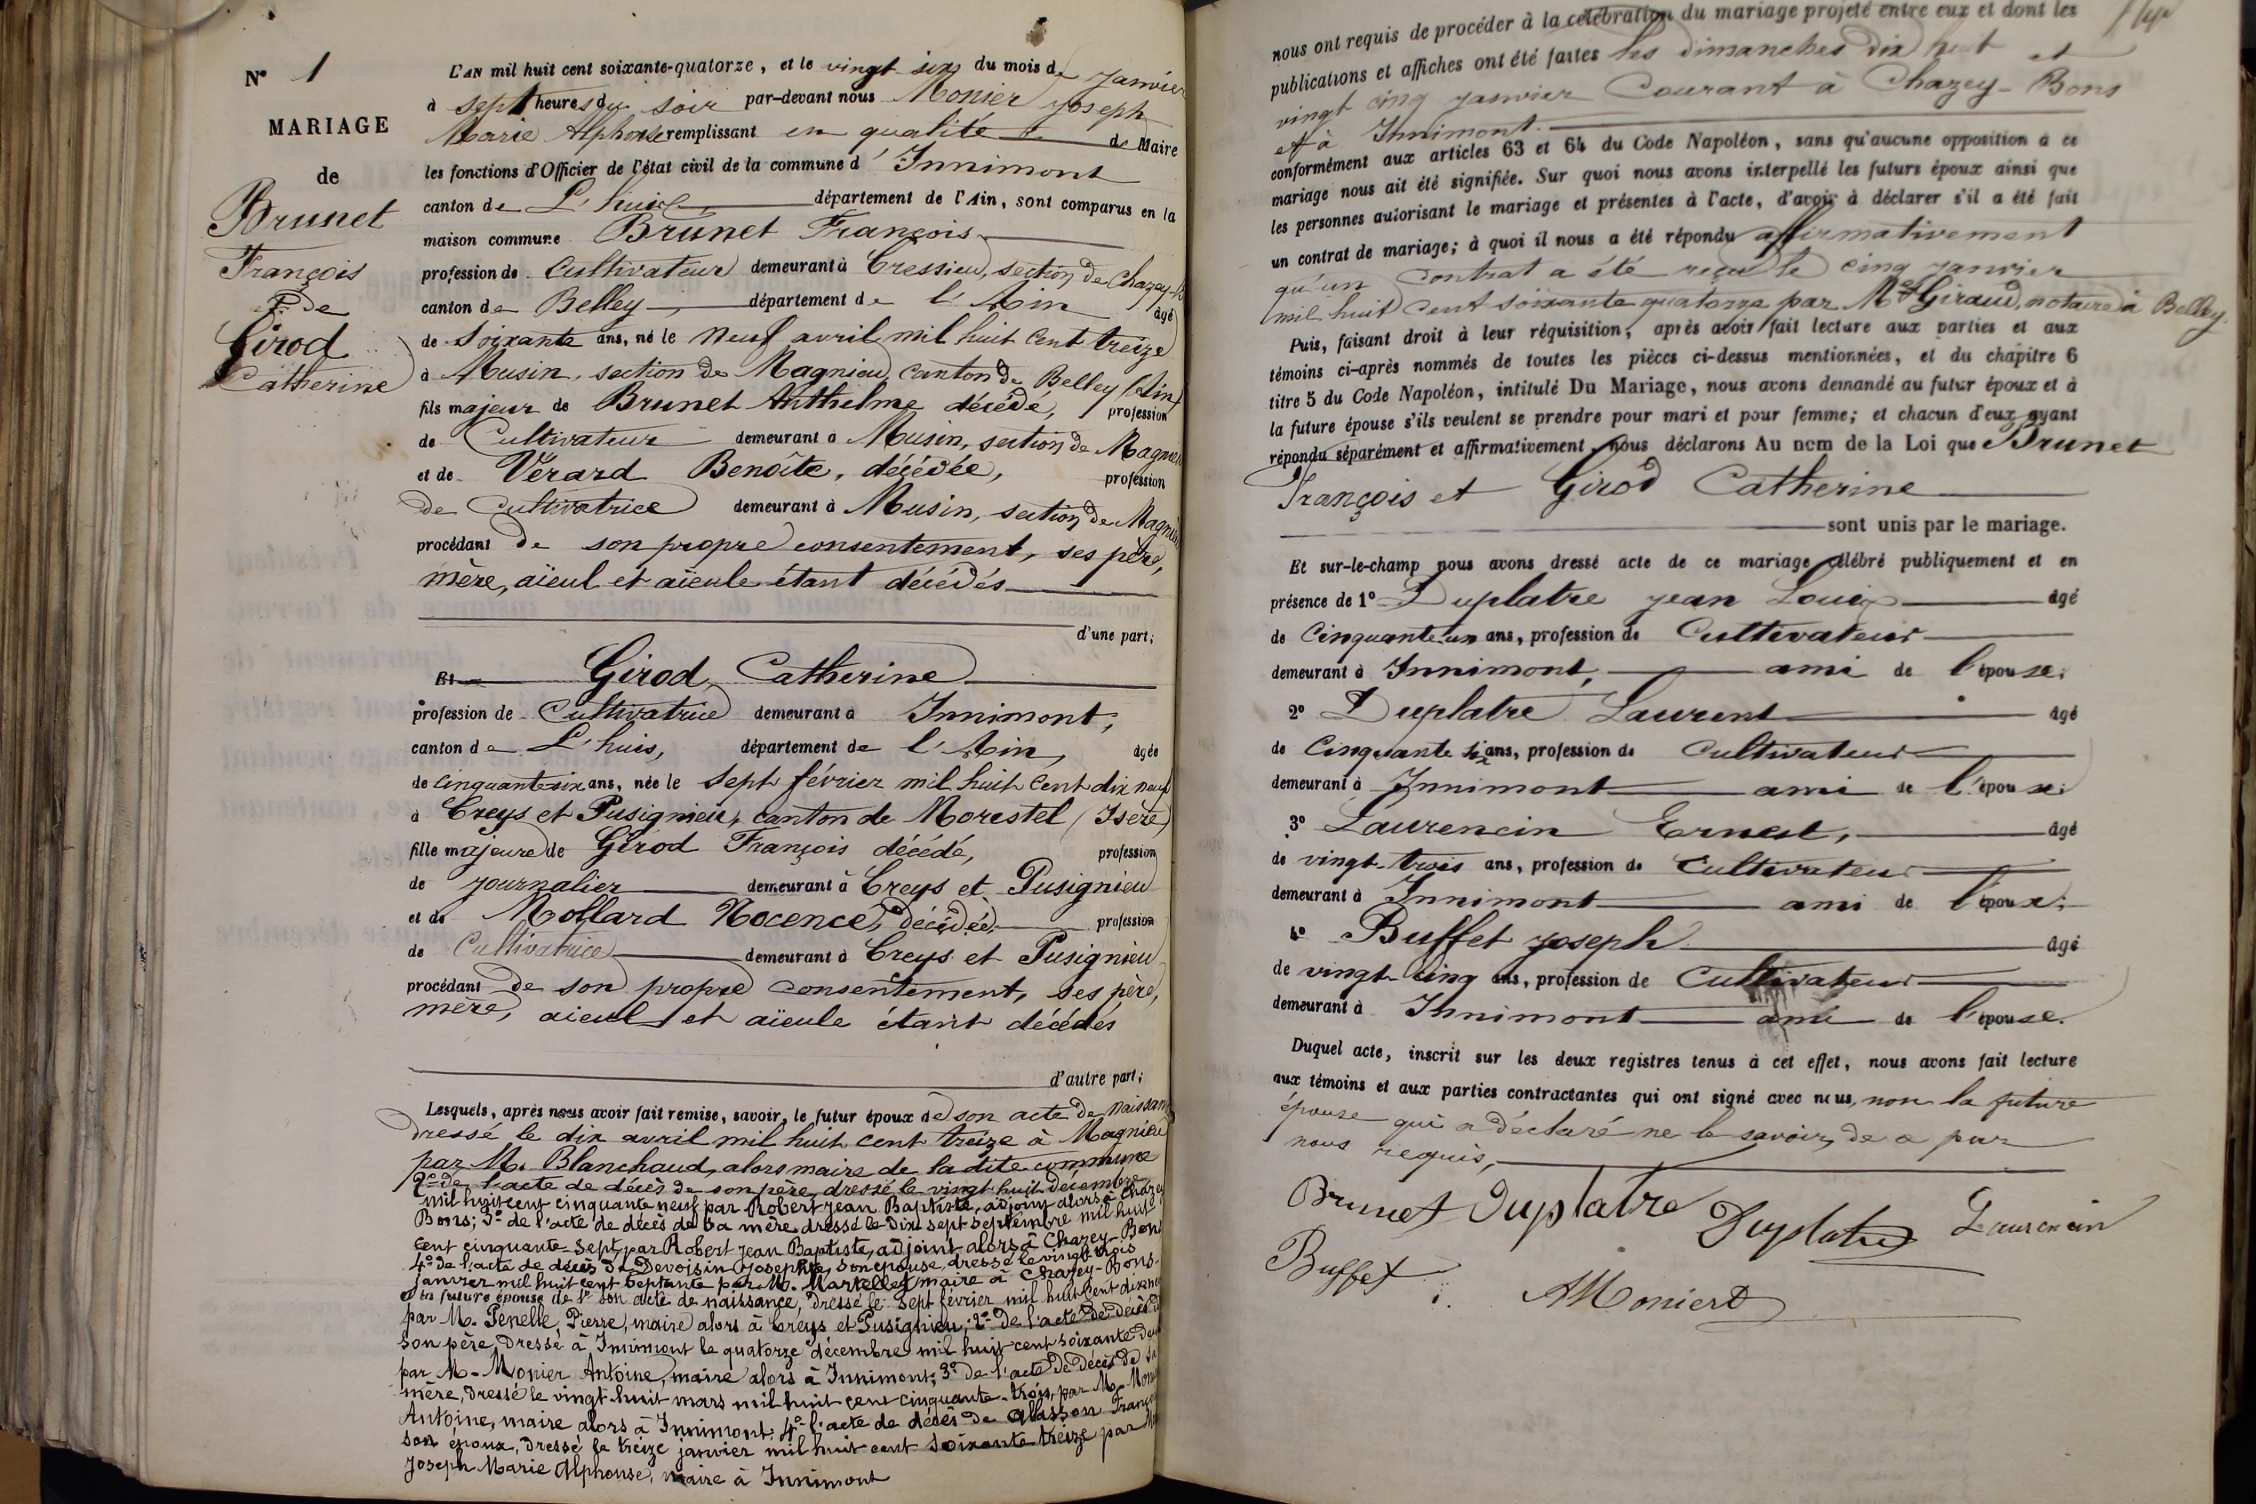 N° 1
MARIAGE
de
Brunet
François
& de
Girod
Catherine
L'AN mil huit cent soixante-quatorze, et le vingt six du mois de Janvier
à sept heures du soir par-devant nous Monier Joseph
Marie Alphonse remplissant en qualité de Maire
les fonctions d'Officier de l'état civil de la commune d'Innimont
canton de L'huis département de l'Ain, sont comparus en la
maison commune Brunet François
profession de Cultivateur demeurant à Cressieu, section de Chazey-B
canton de Belley département de l'Ain âgé
de soixante ans, né le neuf avril mil huit cent treize
à Musin, section de Magnieu, canton de Belley (Ain)
fils majeur de Brunet Anthelme décédé, profession
de Cultivateur demeurant à Musin, section de Magnieu
et de Vérard Benoîte, décédée, profession
de Cultivatrice demeurant à Musin, section de Magnieu
procédant de son propre consentement, ses père,
mère, aïeul et aïeule étant décédés
d'une part;
Et Girod Catherine
profession de Cultivatrice demeurant à Innimont,
canton de L'huis, département de l'Ain, âgée
de cinquante six ans, née le sept février mil huit cent dix neuf
à Creys et Pusignieu, canton de Morestel (Isère)
fille majeure de Girod François décédé, profession
de journalier demeurant à Creys et Pusignieu
et de Mollard Nocence, décédée profession
de Cultivatrice demeurant à Creys et Pusignieu
procédant de son propre consentement, ses père,
mère, aïeul et aïeule étant décédés
d'autre part;
Lesquels, après nous avoir fait remise, savoir, le futur époux de son acte de naissance
dressé le dix avril mil huit cent treize à Magnieu
par M. Blanchaud, alors maire de la dite commune
2° de l'acte de décès de son père, dressé le vingt-huit décembre
mil huit cent cinquante neuf par Robert Jean Baptiste, adjoint alors à Chazey
Bons; 3° de l'acte de décès de sa mère dressé le dix sept septembre mil huit
cent cinquante-sept, par Robert Jean Baptiste, adjoint alors à Chazey-Bons
4° de l'acte de décès de Devoisin Josephte, son épouse, dressé le vingt trois
janvier mil huit cent septante par M. Martellet, maire à Chazey-Bons.
et la future épouse de 1° son acte de naissance, dressé le sept février mil huit cent dix neuf
par M. Penelle Pierre, maire alors à Creys et Pusignieu; 2° de l'acte de décès de
son père, dressé à Innimont le quatorze décembre mil huit cent soixante deux
par M. Monier Antoine, maire alors à Innimont; 3° de l'acte de décès de sa
mère, dressé le vingt-huit mars mil huit cent cinquante-trois, par M. Monier
Antoine, maire alors à Innimont; 4° l'acte de décès de Glasson François
son époux, dressé le treize janvier mil huit cent soixante treize par
Joseph Marie Alphonse, maire à Innimont
nous ont requis de procéder à la célébration du mariage projeté entre eux et dont les
publications et affiches ont été faites les dimanches dix huit et
vingt cinq janvier Courant à Chazey-Bons
et à Innimont.
conformément aux articles 63 et 64 du Code Napoléon, sans qu'aucune opposition à ce
mariage nous ait été signifiée. Sur quoi nous avons interpellé les futurs époux ainsi que
les personnes autorisant le mariage et présentes à l'acte, d'avoir à déclarer s'il a été fait
un contrat de mariage; à quoi il nous a été répondu affirmativement
qu'un contrat a été reçu le cinq janvier
mil huit cent soixante quatorze par Me Giraud, notaire à Belley.
Puis, faisant droit à leur réquisition, après avoir fait lecture aux parties et aux
témoins ci-après nommés de toutes les pièces ci-dessus mentionnées, et du chapitre 6
titre 5 du Code Napoléon, intitulé Du Mariage, nous avons demandé au futur époux et à
la future épouse s'ils veulent se prendre pour mari et pour femme; et chacun d'eux ayant
répondu séparément et affirmativement, nous déclarons Au nom de la Loi que Brunet
François et Girod Catherine
sont unis par le mariage.
Et sur-le-champ nous avons dressé acte de ce mariage célébré publiquement et en
présence de 1° Duplatre Jean Louis âgé
de Cinquante un ans, profession de Cultivateur
demeurant à Innimont, ami de l'épouse;
2° Duplatre Laurent âgé
de Cinquante six ans, profession de Cultivateur
demeurant à Innimont ami de l'épouse;
3° Laurencin Ernest, âgé
de vingt-trois ans, profession de Cultivateur
demeurant à Innimont ami de l'époux;
4° Buffet Joseph âgé
de vingt cinq ans, profession de Cultivateur
demeurant à Innimont ami de l'épouse.
Duquel acte, inscrit sur les deux registres tenus à cet effet, nous avons fait lecture
aux témoins et aux parties contractantes qui ont signé avec nous, non la future
épouse qui a déclaré ne le savoir, de ce par
nous requis,
Brunet Duplatre Duplatre Laurencin
Buffet AMonier